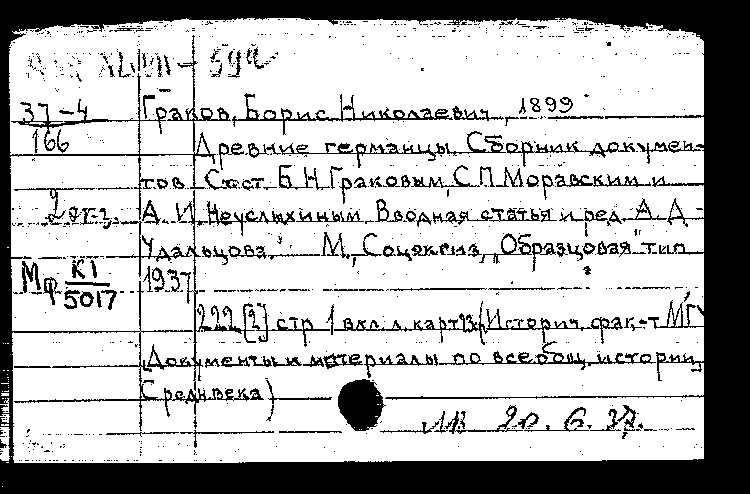 XLVIII – 59а
37-4
166
Граков, Борис Николаевич, 1899
Древние германцы. Сборник докумен-
тов. Сост. Б. Н. Граковым, С. П. Моравским и
2 экз.
А. И. Неуслыхиным. Вводная статья и ред. А. Д.
Удальцова. М., Соцэкгиз, „Образцовая" тип
Мф К1/5017
1937
222 [2] стр 1 вкл. л. карт. (Историч. фак-т МГУ
Документы и материалы по всеобщ. истории,
Средн. века)
20. 6. 37.